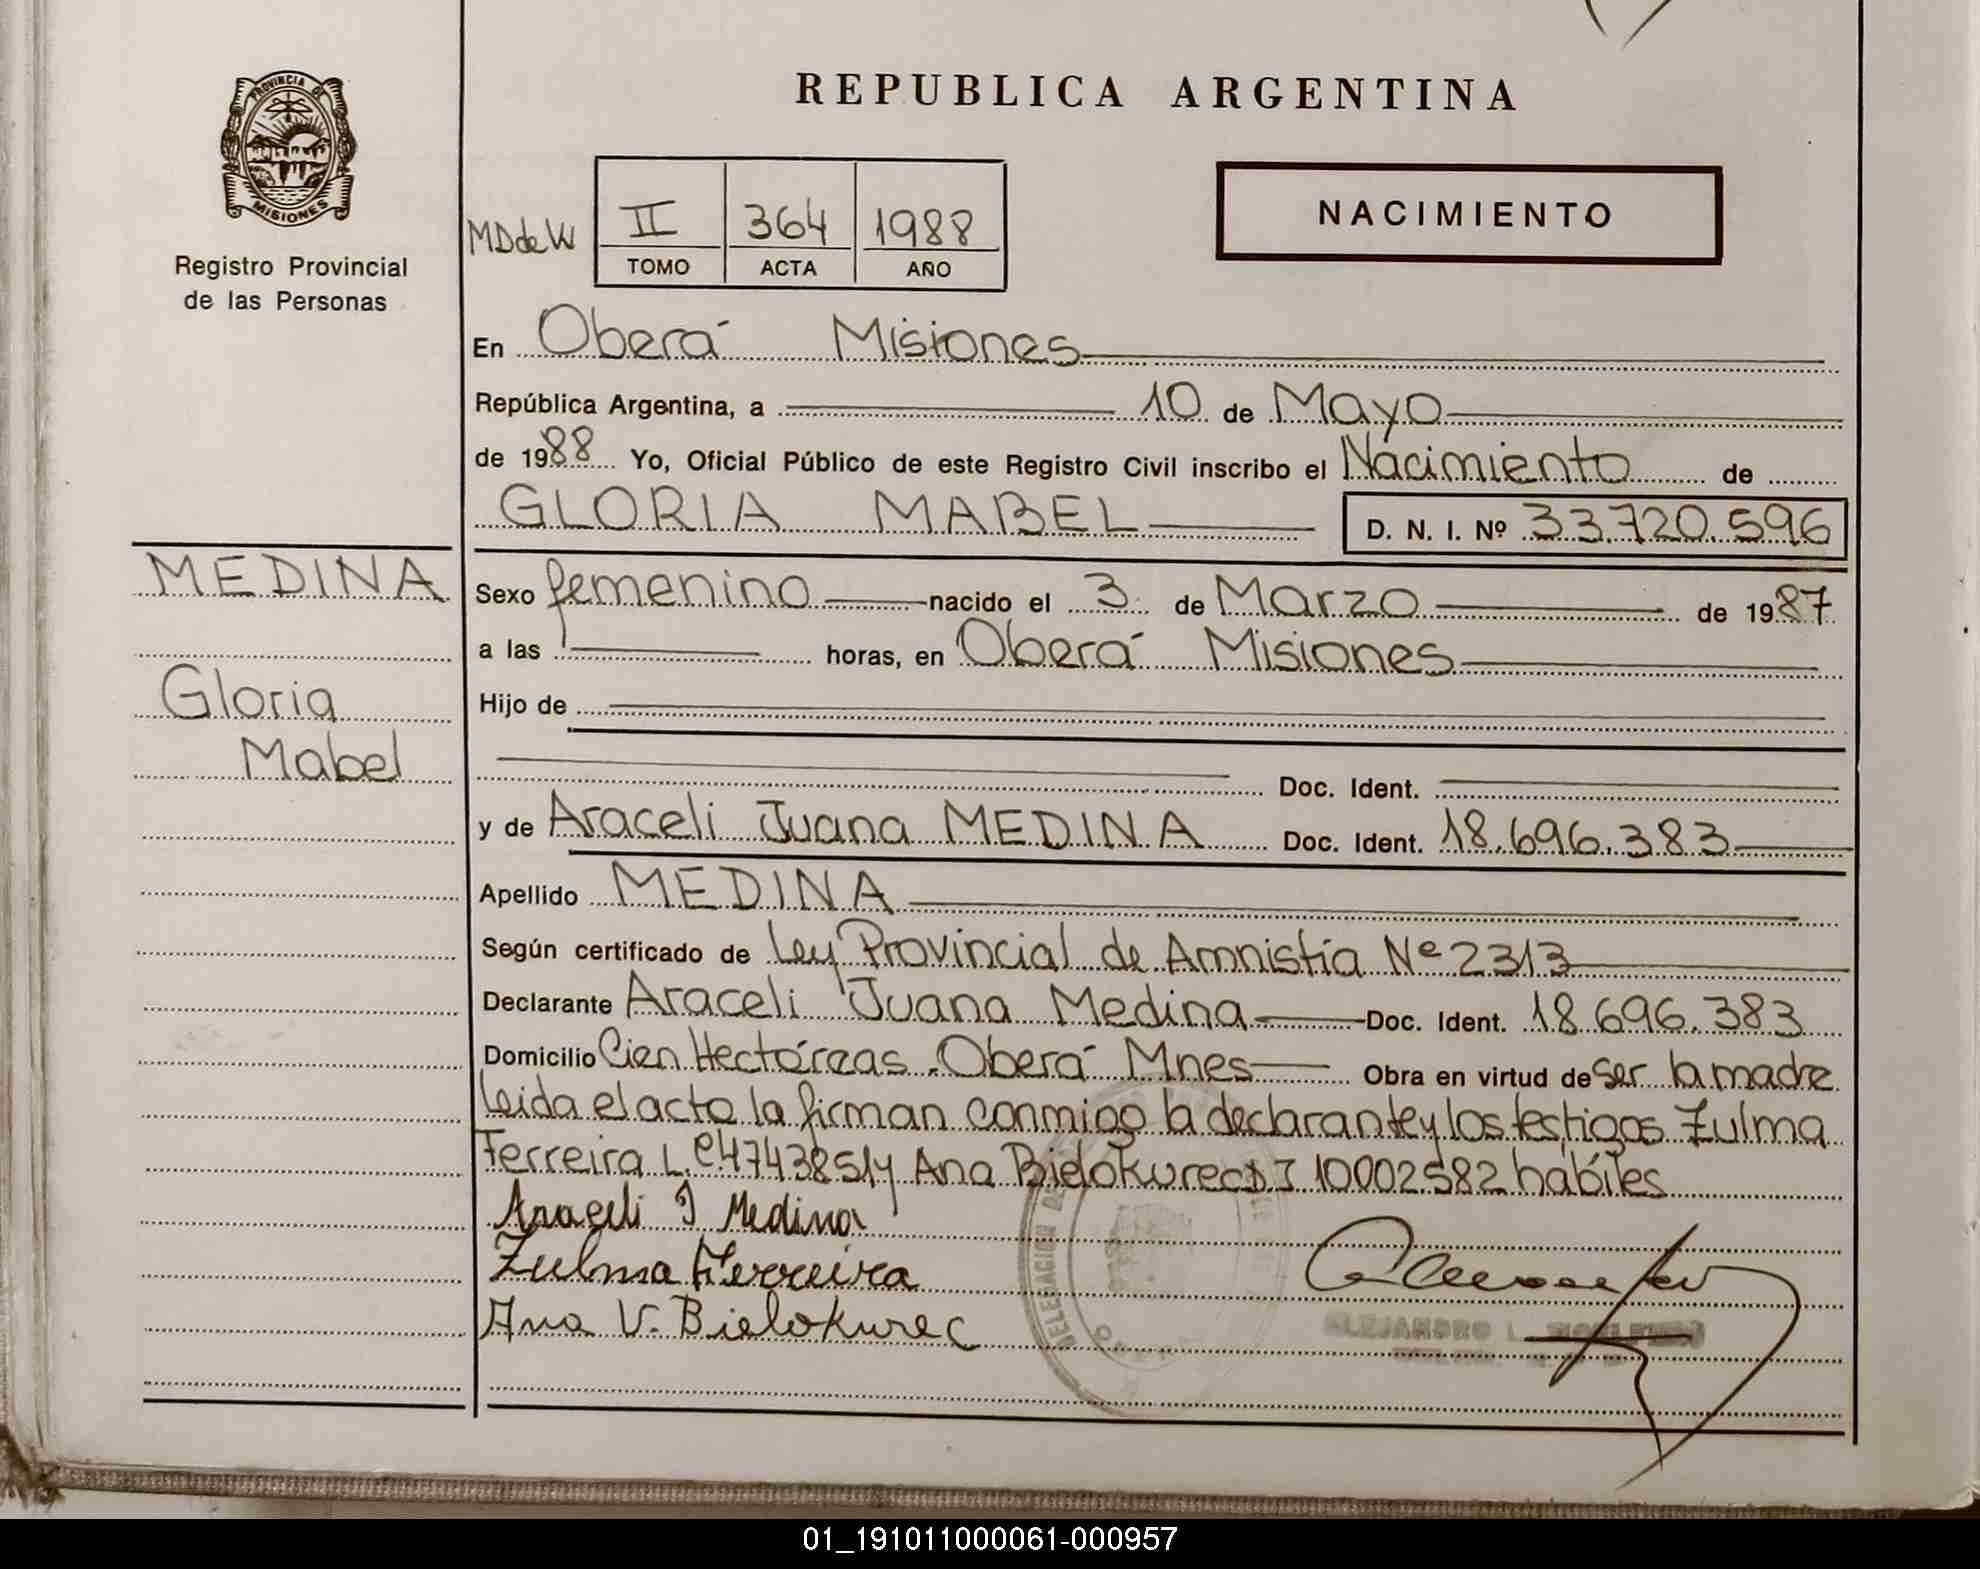 PROVINCIA DE
MISIONES
Registro Provincial
de las Personas
MEDINA
Gloria
Mabel
REPUBLICA ARGENTINA
MDdeW
II 364 1988
TOMO ACTA AÑO
NACIMIENTO
En Oberá Misiones
República Argentina, a 10 de Mayo
de 1988 Yo, Oficial Público de este Registro Civil inscribo el Nacimiento de
GLORIA MABEL D. N. I. Nº 33.720.596
Sexo femenino nacido el 3 de Marzo de 1987
a las horas, en Oberá Misiones
Hijo de
Doc. Ident.
y de Araceli Juana MEDINA Doc. Ident. 18.696.383
Apellido MEDINA
Según certificado de Ley Provincial de Amnistía Nº 2313
Declarante Araceli Juana Medina Doc. Ident. 18.696.383
Domicilio Cien Hectáreas. Oberá Mnes Obra en virtud de ser la madre
leida el acta la firman conmigo la declarante y los testigos Zulma
Ferreira L.C 4743851 y Ana Bielokurec D I 10002582 hábiles
Araceli J Medina
Zulma Ferreira
Ana V. Bielokurec
DELEGACION DE
ALEJANDRO L.
01_191011000061-000957